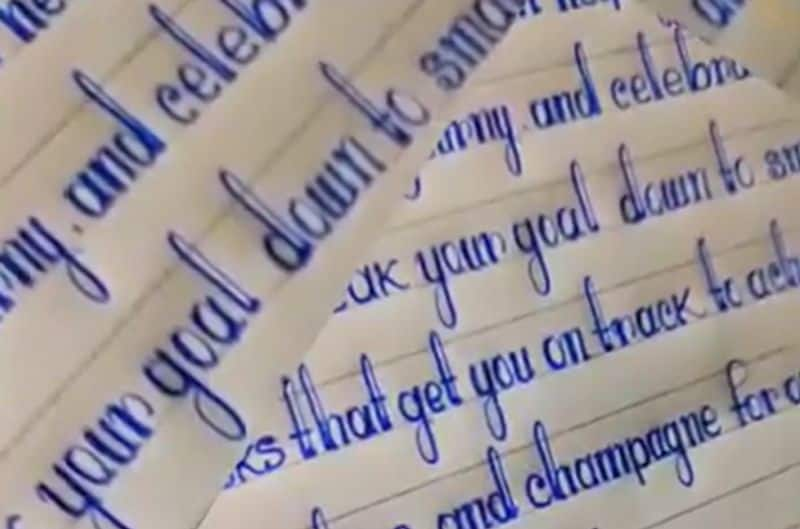 and celebr
your goal down to sma
and celebra
your goal down to sm
that get you on track to ach
and champagne for a